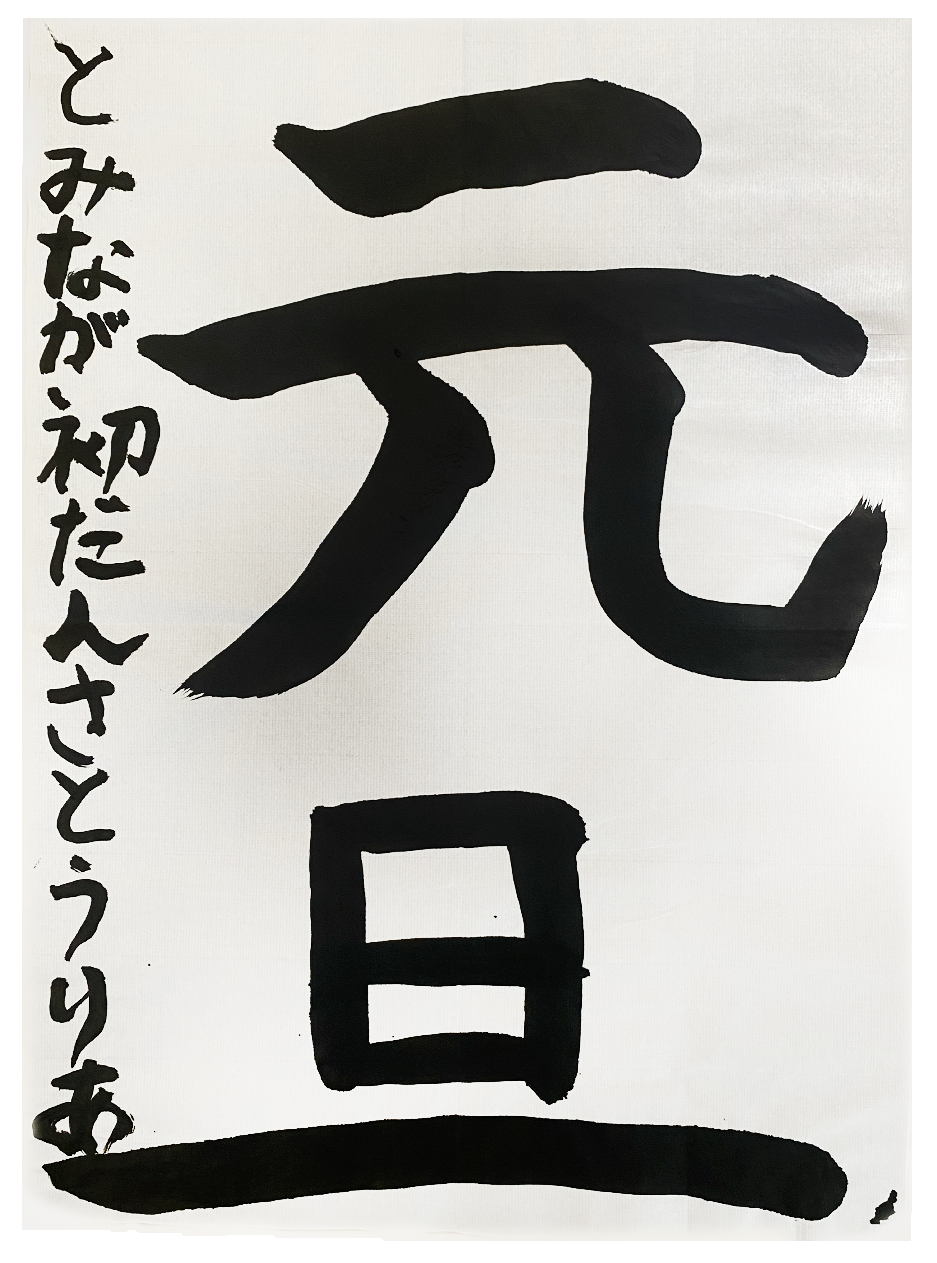 元旦
とみなが初だんさとうりあ